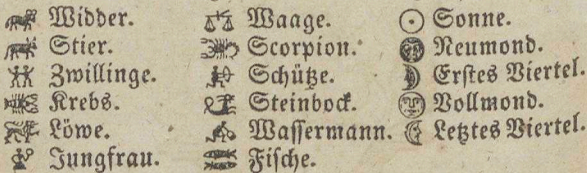 Widder.
Stier.
Zwillinge.
Krebs.
Löwe.
Jungfrau.
Waage.
Scorpion.
Schütze.
Steinbock.
Wassermann.
Fische.
Sonne.
Neumond.
Erstes Viertel.
Vollmond.
Letztes Viertel.